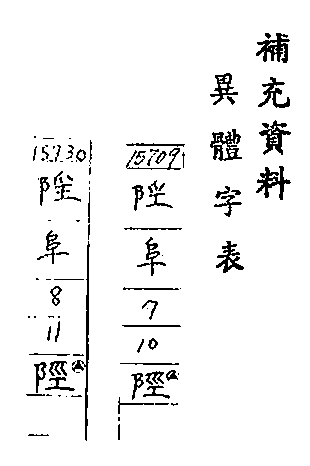 補充資料
異體字表
15709
阜
7
10
陘
15730
阜
8
11
陘